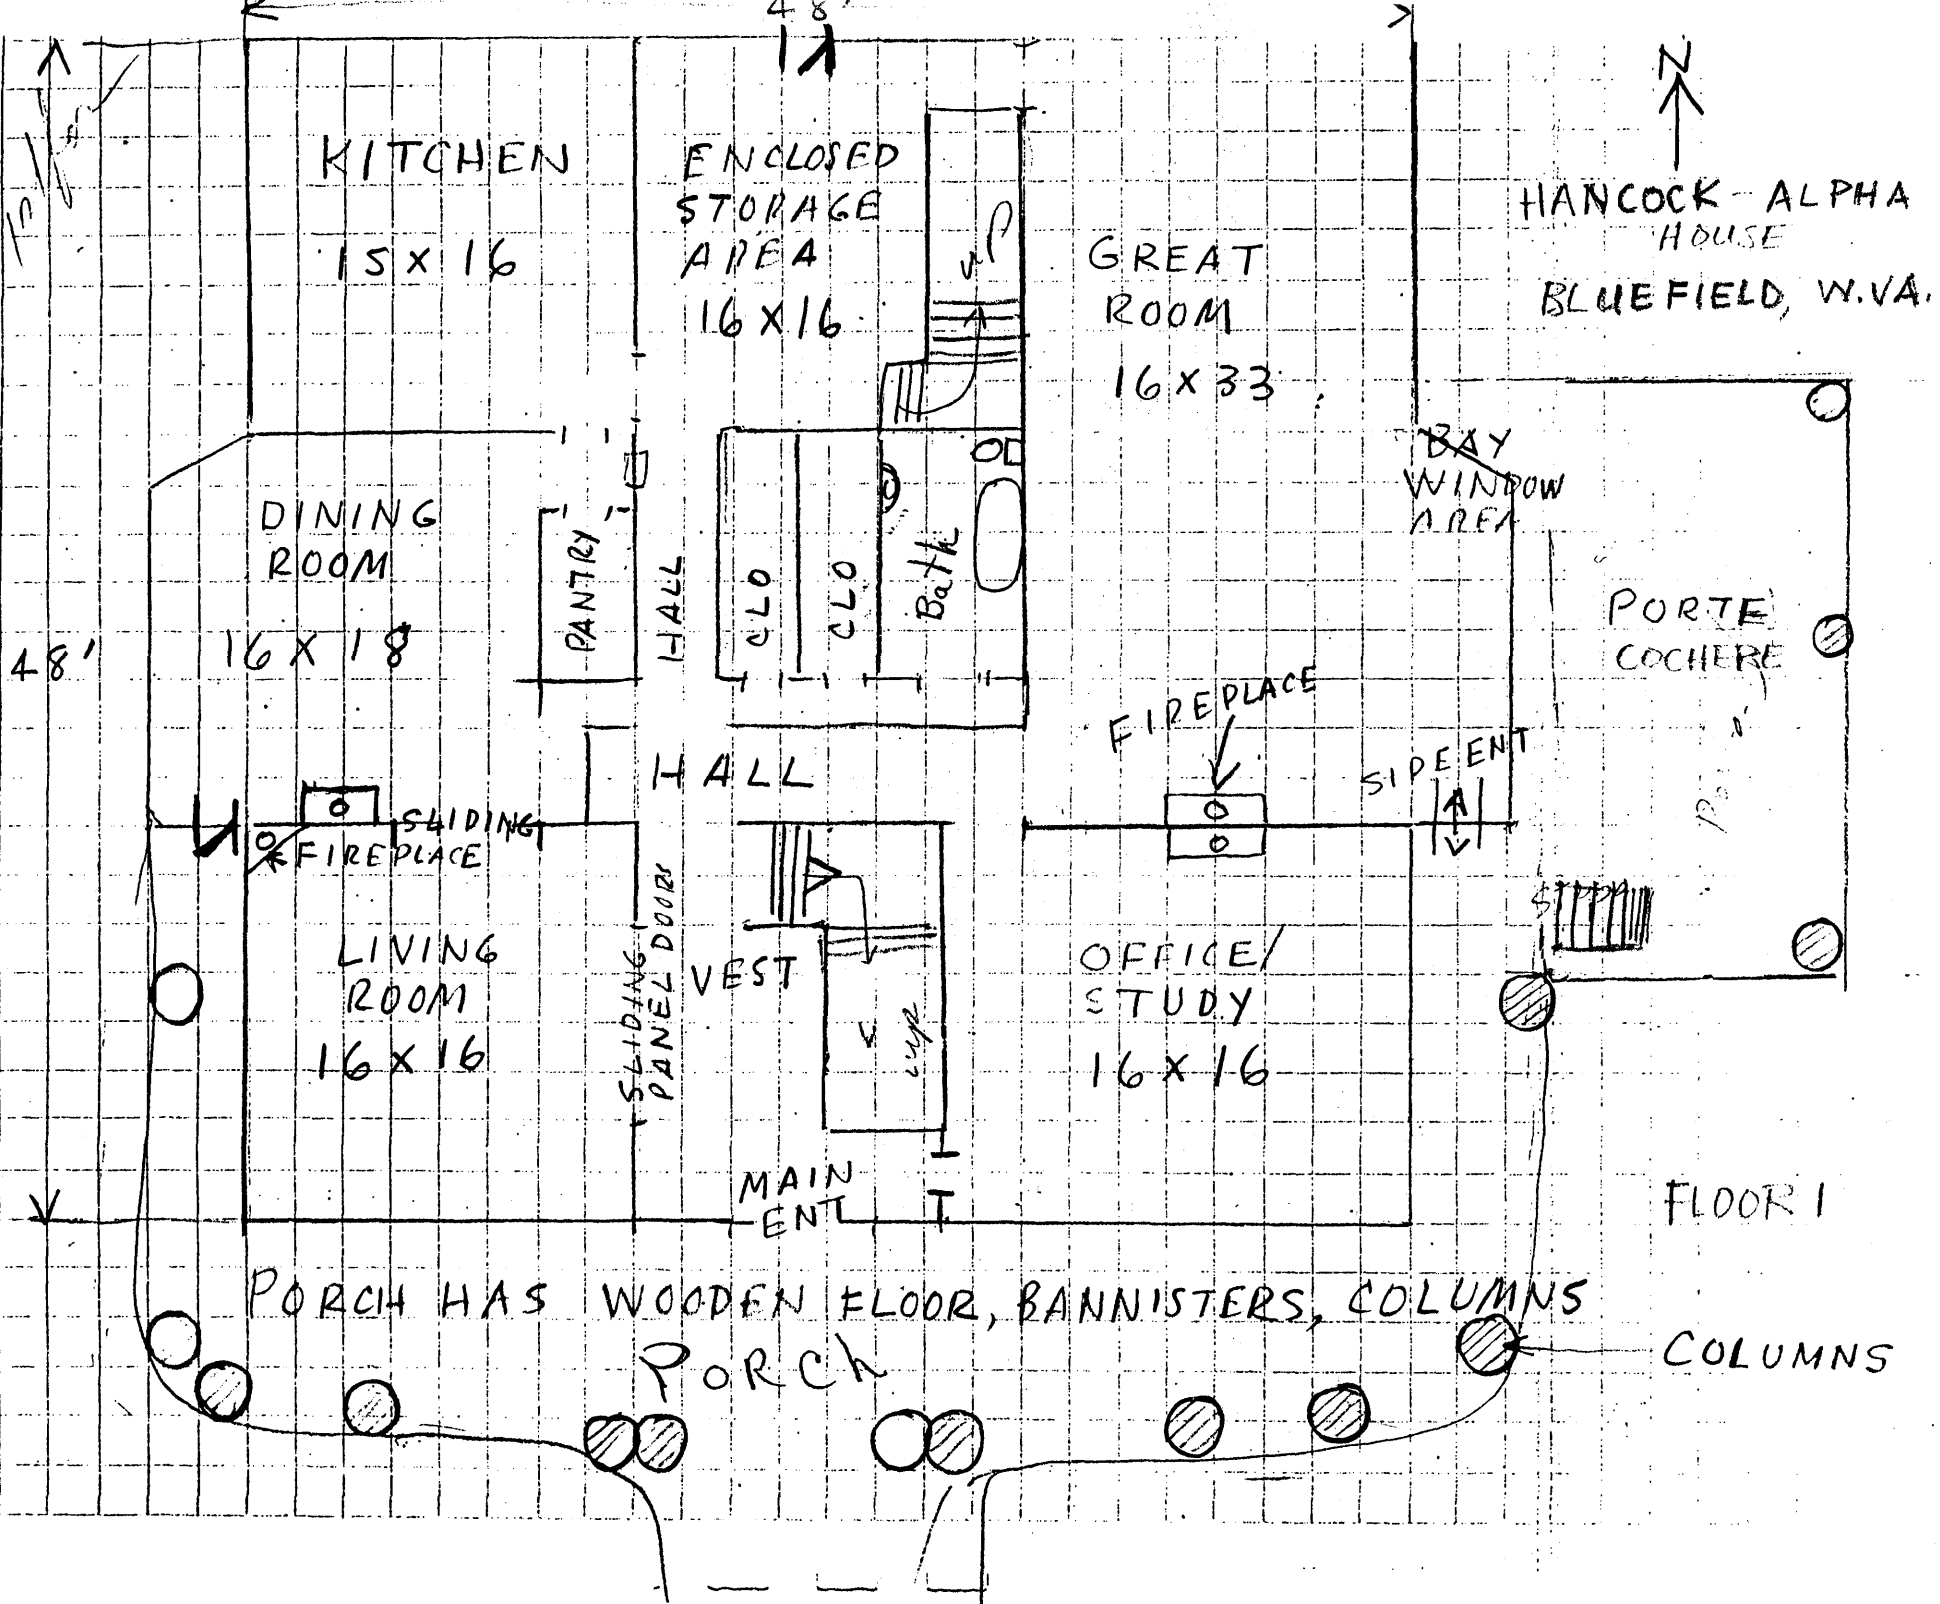 48'
N
HANCOCK-ALPHA
HOUSE
BLUEFIELD, W.VA.
KITCHEN
15 X 16
ENCLOSED
STORAGE
AREA
16 X 16
up
GREAT
ROOM
16 X 33
BAY
WINDOW
AREA
DINING
ROOM
16 X 18
PANTRY
HALL
CLO
CLO
Bath
PORTE
COCHERE
48'
FIREPLACE
SIDE ENT
HALL
SLIDING
FIREPLACE
LIVING
ROOM
16 X 16
SLIDING
PANEL DOORS
VEST
up
OFFICE/
STUDY
16 X 16
MAIN
ENT
FLOOR 1
PORCH HAS WOODEN FLOOR, BANNISTERS, COLUMNS
PORCh
COLUMNS